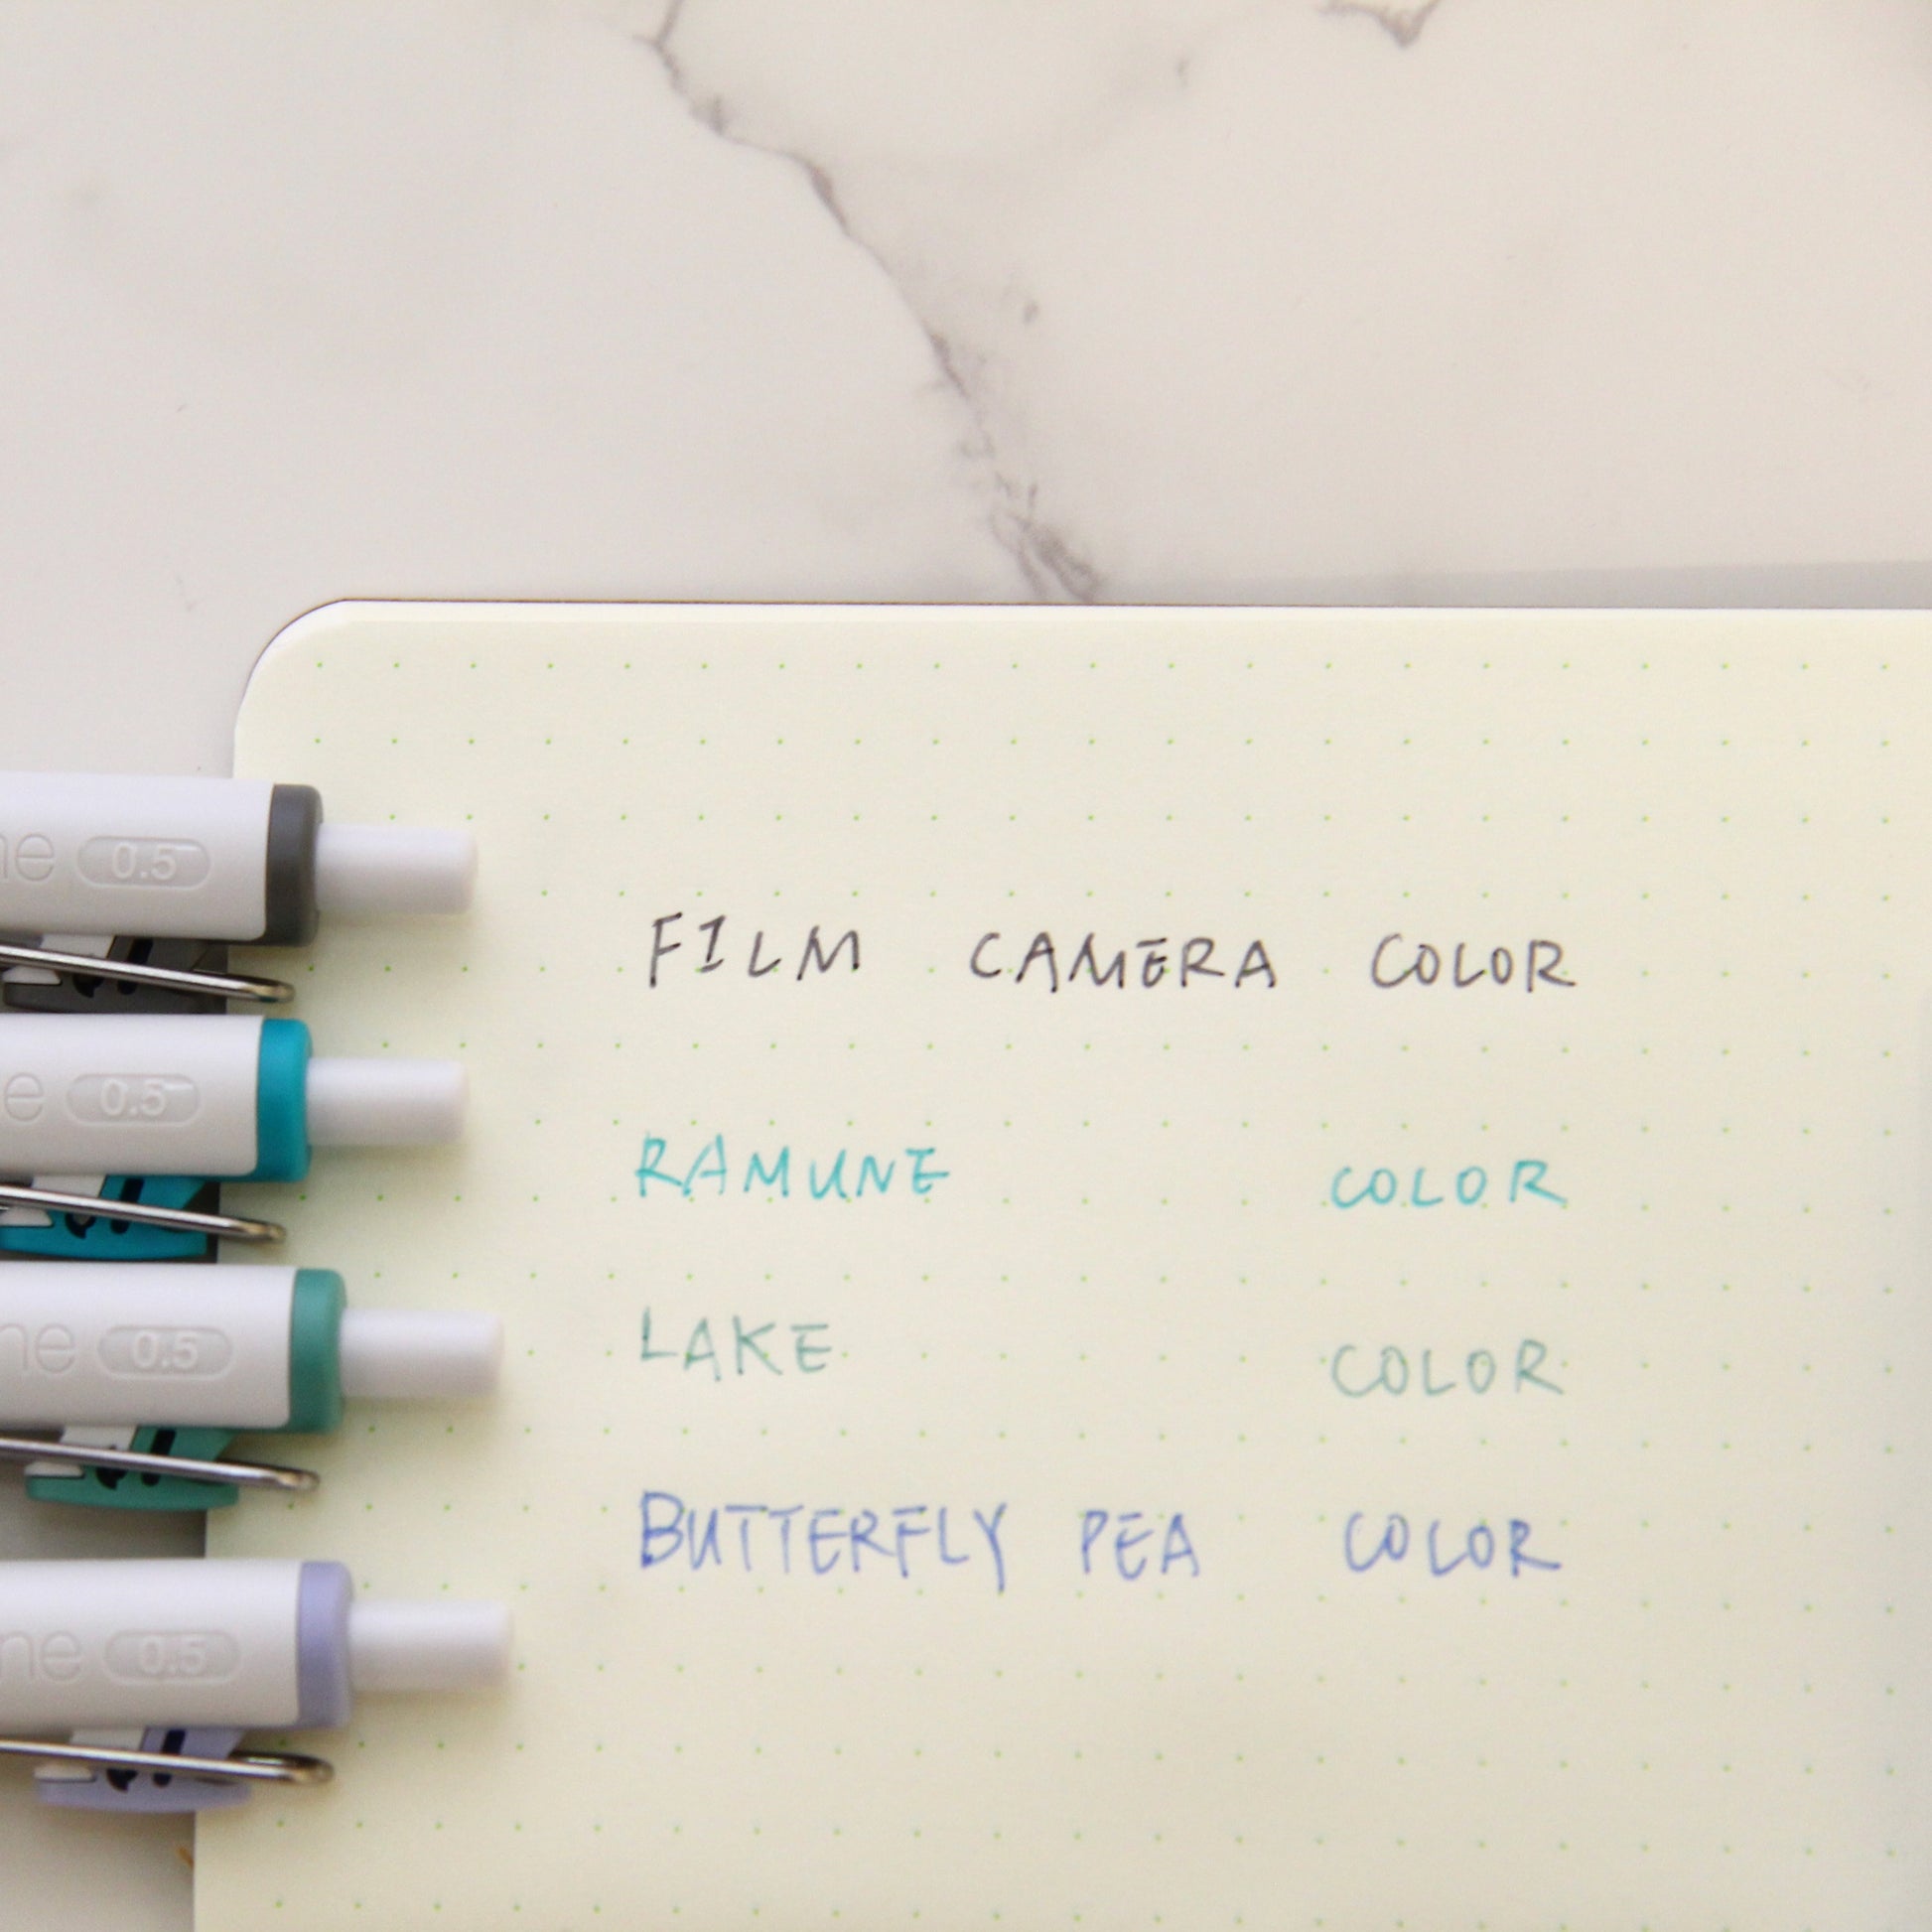 0.5
FILM CAMERA COLOR
0.5
RAMUNE COLOR
0.5
LAKE COLOR
BUTTERFLY PEA COLOR
0.5